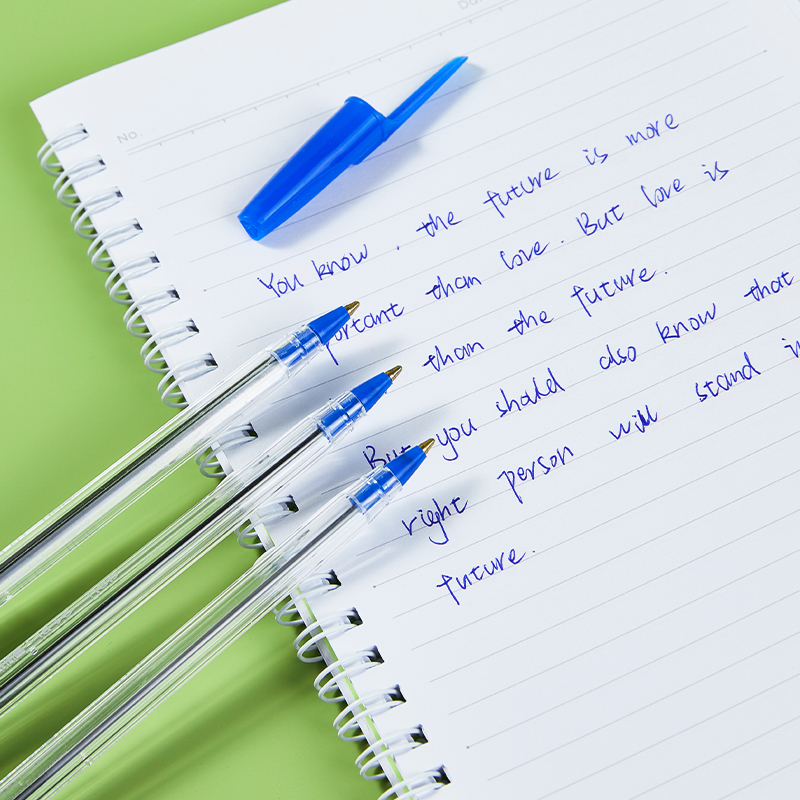 No
You know , the future is more
portant than love. But love is
than the future.
But you should also know that
right person will stand
future.